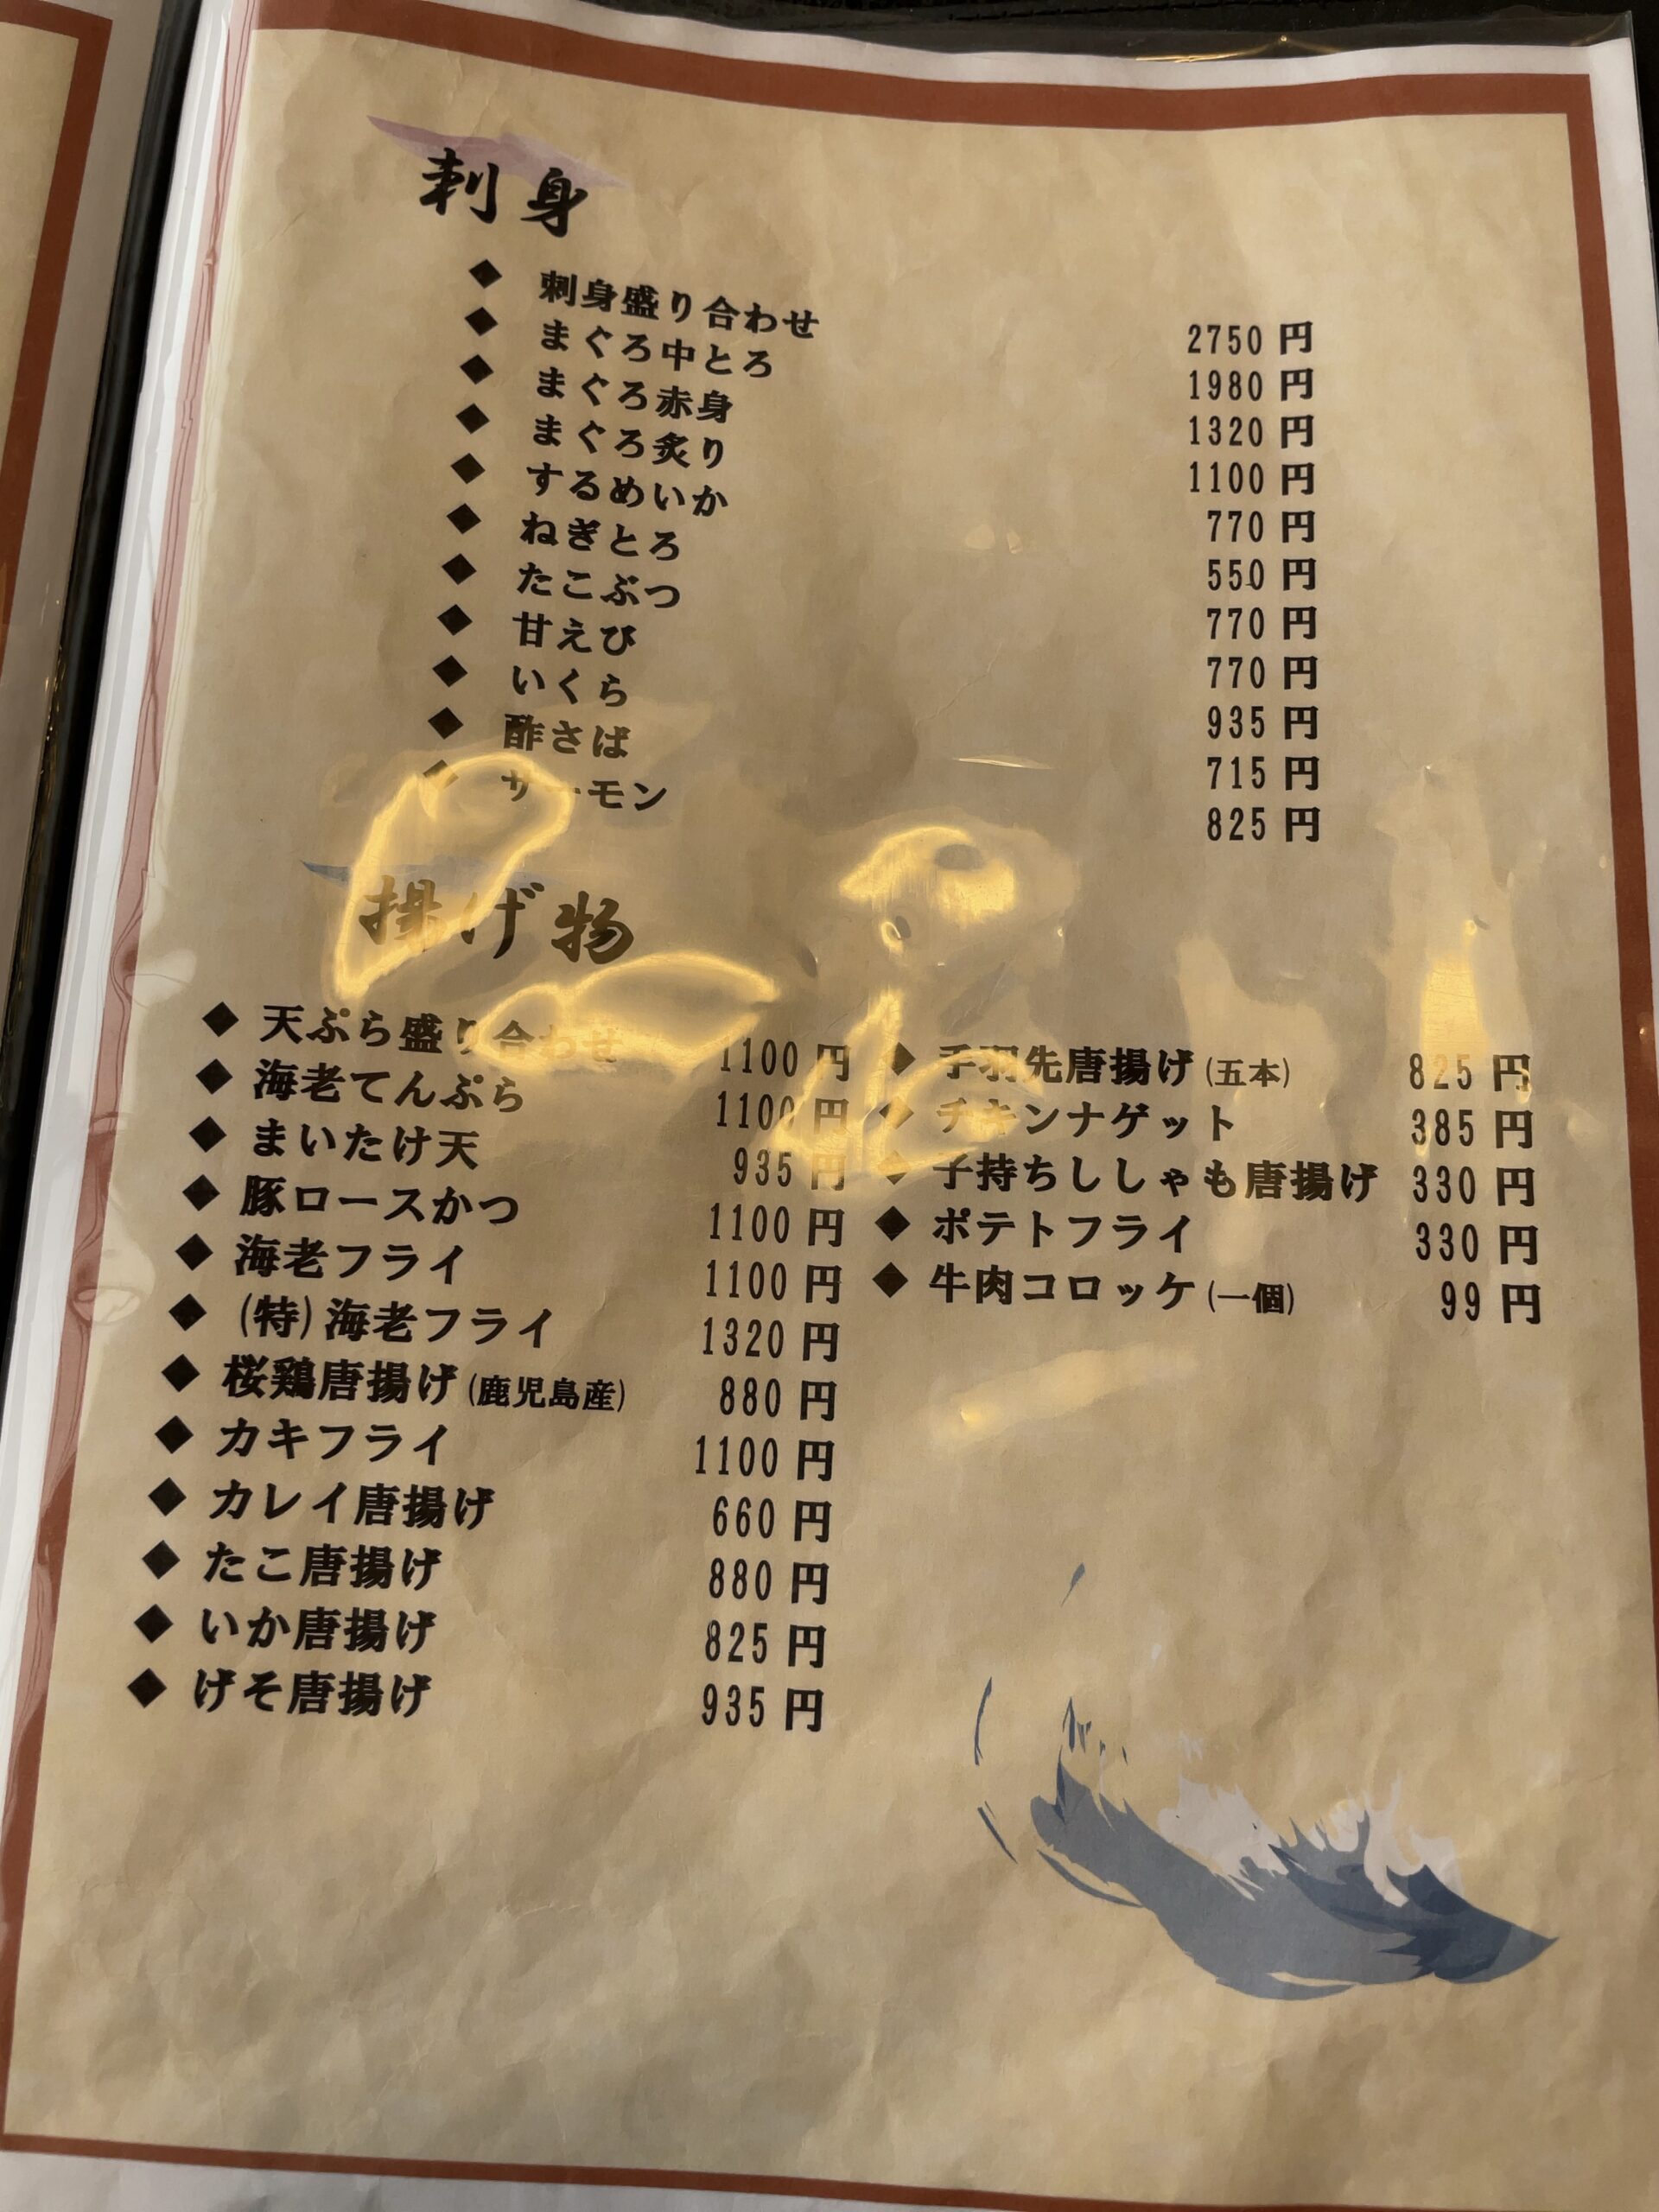 刺身
◆ 刺身盛り合わせ 2750 円
◆ まぐろ中とろ 1980 円
◆ まぐろ赤身 1320 円
◆ まぐろ炙り 1100 円
◆ するめいか 770 円
◆ ねぎとろ 550 円
◆ たこぶつ 770 円
◆ 甘えび 770 円
◆ いくら 935 円
◆ 酢さば 715 円
◆ サーモン 825 円
揚げ物
◆ 天ぷら盛り合わせ 1100 円
◆ 海老てんぷら 1100 円
◆ まいたけ天 935 円
◆ 豚ロースかつ 1100 円
◆ 海老フライ 1100 円
◆ (特)海老フライ 1320 円
◆ 桜鶏唐揚げ(鹿児島産) 880 円
◆ カキフライ 1100 円
◆ カレイ唐揚げ 660 円
◆ たこ唐揚げ 880 円
◆ いか唐揚げ 825 円
◆ げそ唐揚げ 935 円
◆ 手羽先唐揚げ(五本) 825 円
◆ チキンナゲット 385 円
◆ 子持ちししゃも唐揚げ 330 円
◆ ポテトフライ 330 円
◆ 牛肉コロッケ(一個) 99 円